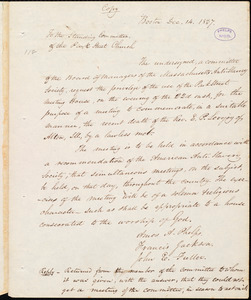 Copy
Boston Dec. 14. 1837.
To the Standing Committee
of the Park Street Church
The undersigned, a committee
of the Board of Managers of the Massachusetts Anti-Slavery
Society, request the privilege of the use of the Park Street
Meeting House, on the evening of the 22d inst, for the
purpose of a meeting to commemorate, in a suitable
manner, the recent death of the Rev. E. P. Lovejoy of
Alton, Ill, by a lawless mob.
The meeting is to be held in accordance with
a recommendation of the American Anti-Slavery
Society, that simultaneous meetings, on the subject
be held, on that day, throughout the country. The
of the meeting will be of a solemn & religious
character. Such as shall be appropriate to a house
consecrated to the worship of God.
Amos A. Phelps
Francis Jackson
John E. Fuller
Reply - Returned from the member of the committee to whom
it was given, with the answer, that they could not
get a meeting of the committee, in season to act